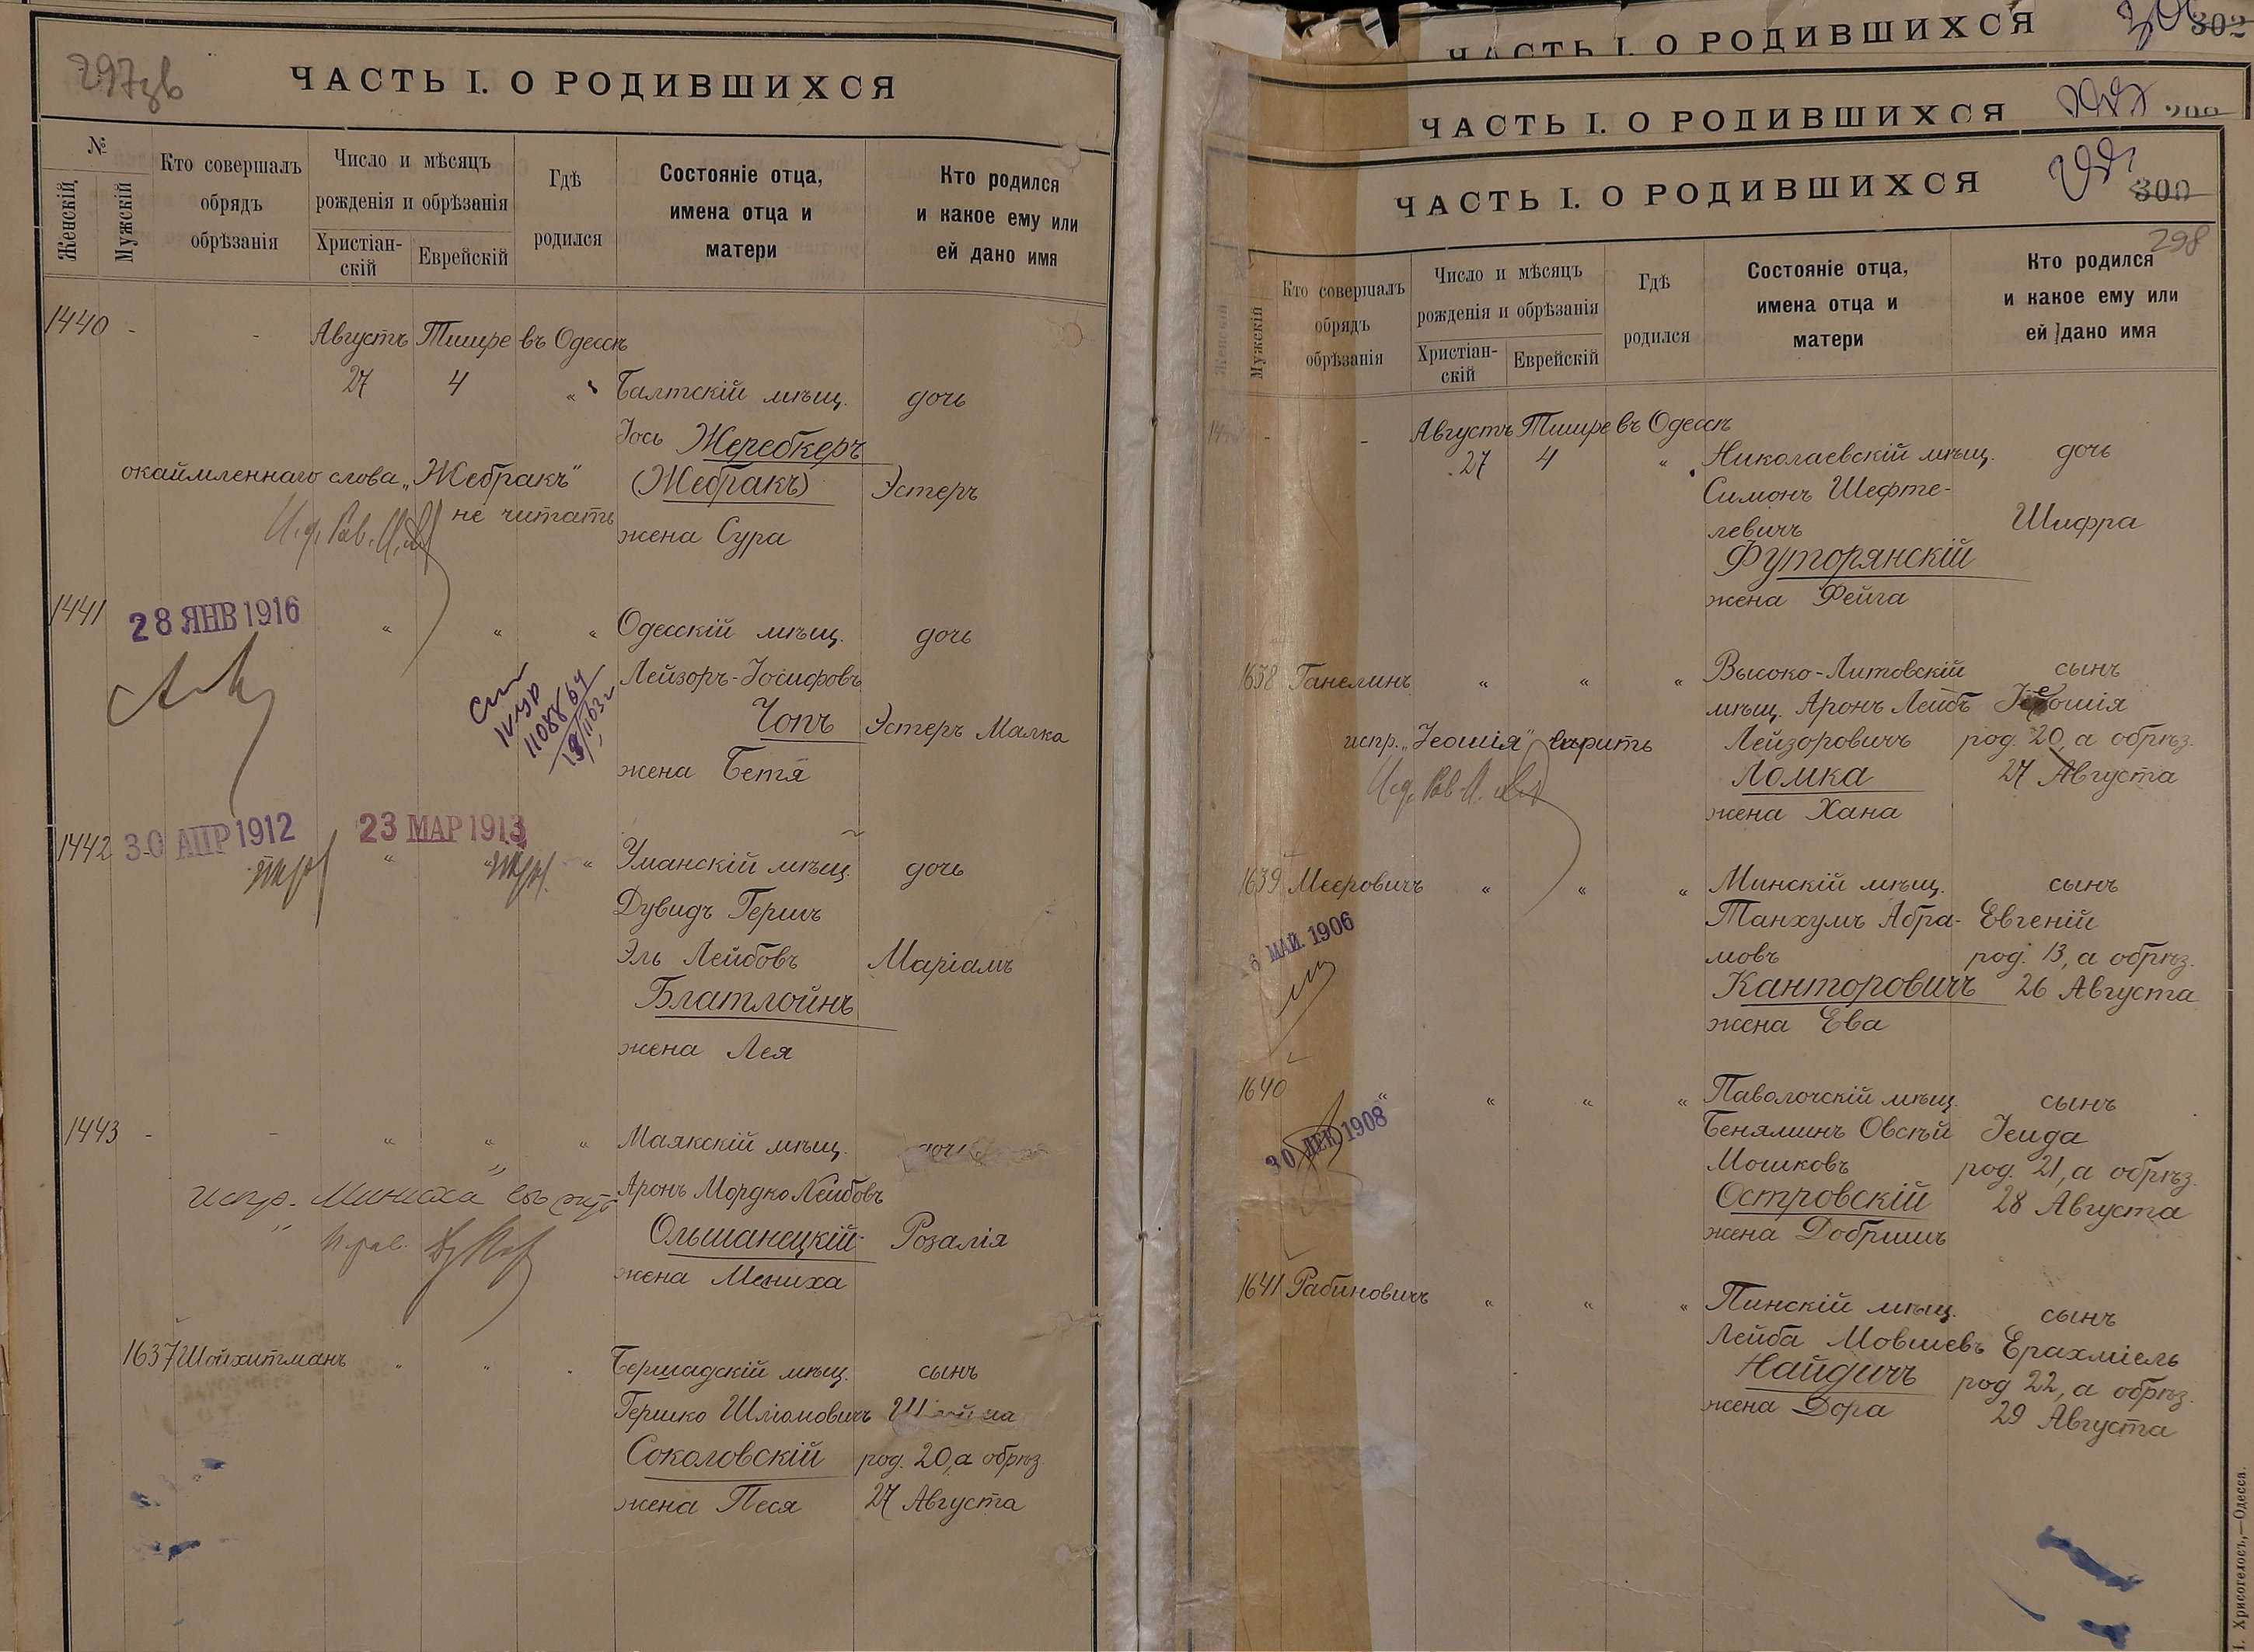 297зв
ЧАСТЬ I. О РОДИВШИХСЯ
№
Женскій
Мужскій
Кто совершалъ
обрядъ
обрѣзанія
Число и мѣсяцъ
рожденія и обрѣзанія
Христіан-
скій
Еврейскій
Гдѣ
родился
Состояніе отца,
имена отца и
матери
Кто родился
и какое ему или
ей дано имя
1440 - - Августъ Тишре въ Одессѣ
27 4 „ Балтскій мѣщ. дочь
Іось Жеребкеръ
окаймленнаго слова „Жебракъ" (Жебракъ) Эстеръ
не читать
И. д. Рав.
жена Сура
1441 28 ЯНВ 1916 „ „ „ Одесскій мѣщ. дочь
Лейзоръ-Іосифовъ
Чопъ Эстеръ Малка
жена Бетя
1442 30 АПР 1912 23 МАР 1913
„ „ „ Уманскій мѣщ. дочь
Дувидъ Гершъ
Эль Лейбовъ Маріамъ
Блатлойнъ
жена Лея
1443 - - „ „ „ Маякскій мѣщ. дочь
испр. „Миниха" Аронъ Мордко Лейбовъ
Ольшанецкій Розалія
жена Мениха
1637 Шойхитманъ „ „ „ Бершадскій мѣщ. сынъ
Гершко Шліомовичъ
Соколовскій род. 20, а обрѣз
жена Песя 27 Августа
ЧАСТЬ I. О РОДИВШИХСЯ 302
ЧАСТЬ I. О РОДИВШИХСЯ
ЧАСТЬ I. О РОДИВШИХСЯ 300
298
Женскій
Мужскій
Кто совершалъ
обрядъ
обрѣзанія
Число и мѣсяцъ
рожденія и обрѣзанія
Христіан-
скій
Еврейскій
Гдѣ
родился
Состояніе отца,
имена отца и
матери
Кто родился
и какое ему или
ей дано имя
- - Августъ Тишре въ Одессѣ
27 4 „ Николаевскій мѣщ. дочь
Симонъ Шефте-
левичъ Шифра
Футорянскій
жена Фейга
1638 Ганелинъ „ „ „ Высоко-Литовскій сынъ
мѣщ. Аронъ Лейбъ
испр. „Іеошія", вѣрить Лейзоровичъ род. 20, а обрѣз.
И. д. Рав. Ломка 27 Августа
жена Хана
1639 Мееровичъ „ „ „ Минскій мѣщ. сынъ
6 МАЙ. 1906 Танхумъ Абра- Евгеній
мовъ род. 13, а обрѣз.
Канторовичъ 26 Августа
жена Ева
1640 „ „ „ „ Паволочскій мѣщ. сынъ
30 ДЕК 1908 Беняминъ Овсѣй Іеида
Мошковъ род. 21, а обрѣз.
Островскій 28 Августа
жена Добришъ
1641 Рабиновичъ „ „ „ Пинскій мѣщ. сынъ
Лейба Мовшевъ Ерахміель
Найдичъ род 22, а обрѣз.
жена Дора 29 Августа
Хрисогелосъ,—Одесса.